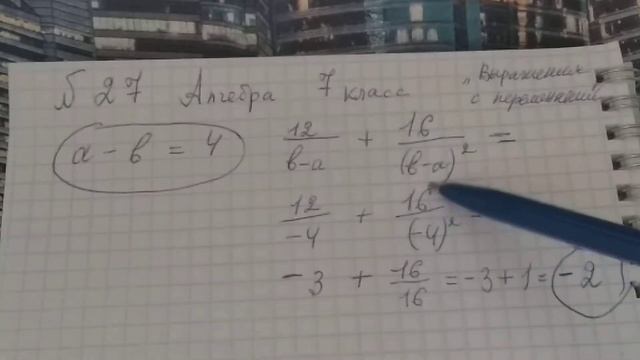 № 27 Алгебра 7 класс „Выражения
с переменными
a - b = 4
12/(b-a) + 16/(b-a)² =
12/-4 + 16/(-4)² -
-3 + 16/16 = -3 + 1 = -2